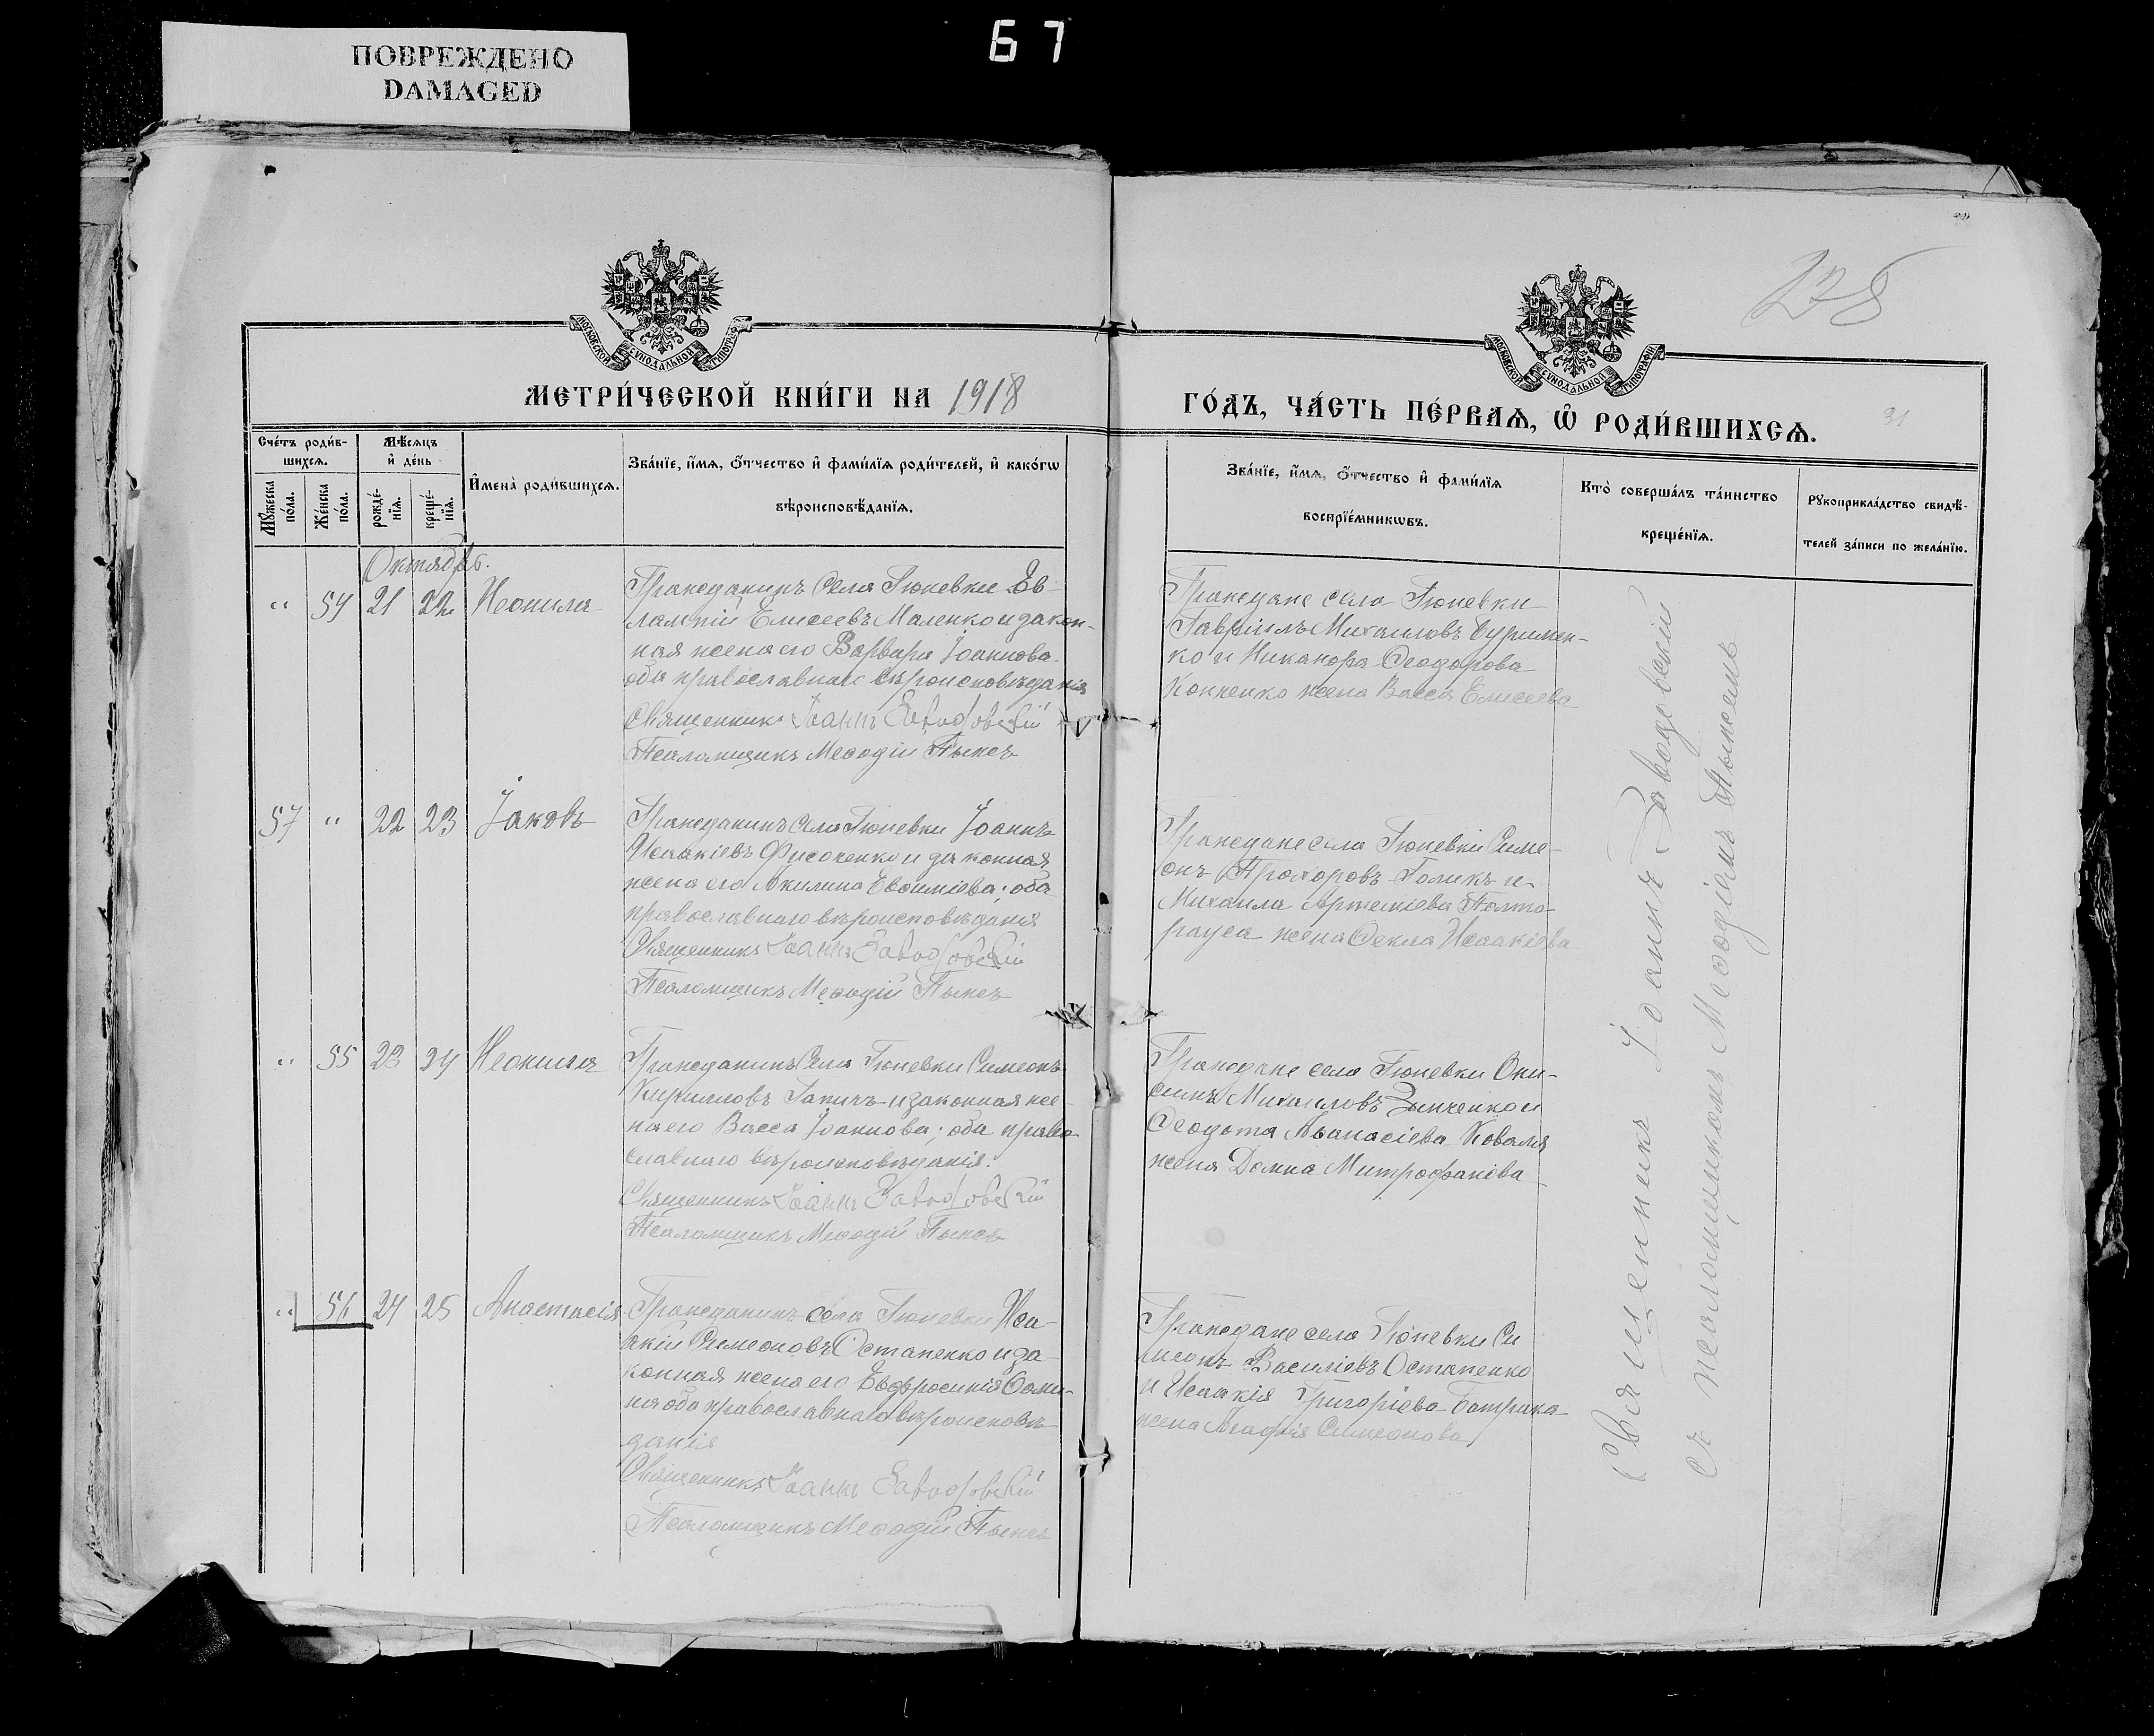 ПОВРЕЖДЕНО
DAMAGED
67
238
31
МОСКОВСКОЙ СУНОДАЛЬНОЙ ТИПОГРАФІИ
МОСКОВСКОЙ СУНОДАЛЬНОЙ ТИПОГРАФІИ
МЕТРИ́ЧЕСКОЙ КНИ́ГИ НА 1918
ГО́ДЪ, ЧА́СТЬ ПЕ́РВАѦ, Ѡ РОДИ́ВШИХСѦ.
Сче́тъ роди́в-
шихсѧ.
Мꙋ́жеска по́ла.
Же́нска по́ла.
Мѣ́сѧцъ
и҆ де́нь
рожде́-
нїѧ.
креще́-
нїѧ.
И҆мена̀ роди́вшихсѧ.
Зва́нїе, и҆́мѧ, ѻ҆́тчество и҆ фами́лїѧ роди́телей, и҆ како́гѡ
вѣроисповѣ́данїѧ.
Зва́нїе, и҆́мѧ, ѻ҆́тчество и҆ фами́лїѧ
воспрїе́мникѡвъ.
Кто̀ соверша́лъ та́инство
креще́нїѧ.
Рꙋкоприкла́дство свидѣ́-
телей за́писи по жела́нїю.
Октябрь.
" 54 21 22 Неонила
Гражданинъ села Гюневки Ев-
лампій Елисеевъ Маленко и закон-
ная жена его Варвара Іоаннова
оба православнаго вѣроисповѣданія
Священникъ Іоаннъ Заводовскій
Псаломщикъ Меѳодій Пыжъ
Граждане села Гюневки
Гавріилъ Михаиловъ Буримен-
ко и Никанора Ѳеодорова
Конненко жена Васса Елисеева
57 " 22 23 Іаковъ
Гражданинъ села Гюневки Іоаннъ
Исаакіевъ Фисоченко и законная
жена его Акилина Евѳиміева; оба
православнаго вѣроисповѣданія
Священникъ Іоаннъ Заводовскій
Псаломщикъ Меѳодій Пыжъ
Граждане села Гюневки Симе-
онъ Прохоровъ Голикъ и
Михаила Артеміева Полто-
рауса жена Ѳекла Исаакіева
" 55 23 24 Неонила
Гражданинъ села Гюневки Симеонъ
Кирилловъ Гапичъ и законная же-
на его Васса Іоаннова; оба право-
славнаго вѣроисповѣданія.
Священникъ Іоаннъ Заводовскій
Псаломщикъ Меѳодій Пыжъ
Граждане села Гюневки Они-
симъ Михаиловъ Зинченко и
Ѳеодота Аѳанасіева Коваля
жена Домна Митрофанова
" 56 24 25 Анастасія
Гражданинъ села Гюневки Иса-
акій Симеоновъ Остапенко и за-
конная жена его Евфросинія Ѳоми-
на оба православнаго вѣроисповѣ-
данія
Священникъ Іоаннъ Заводовскій
Псаломщикъ Меѳодій Пыжъ
Граждане села Гюневки Си
меонъ Василіевъ Остапенко
и Исаакія Григоріева Батрака
жена Агафія Симеонова
Священникъ Іоаннъ Заводовскій
съ псаломщикомъ Меѳодіемъ Пыжемъ